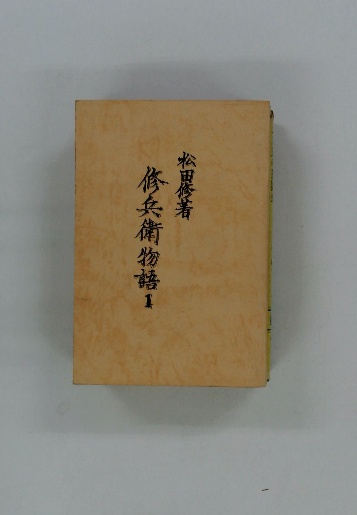 松田修著
修兵衛物語 I